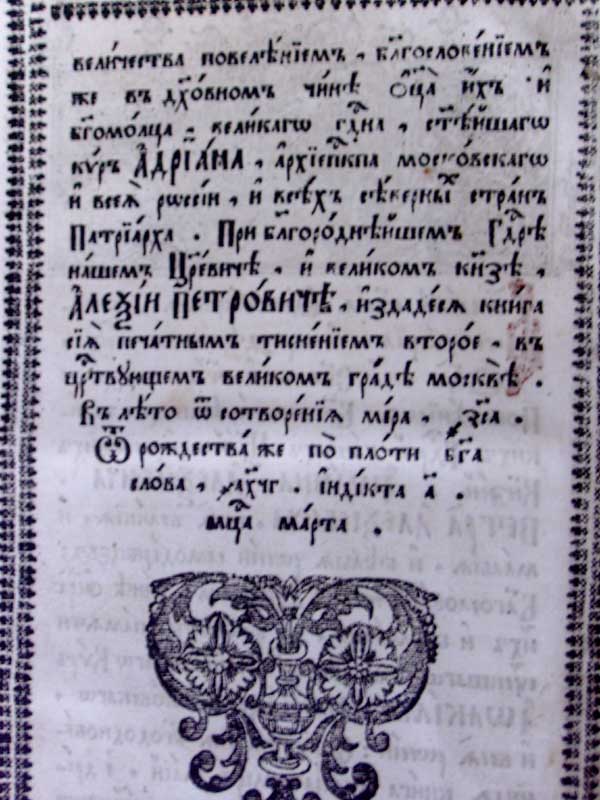 вели́чества повелѣ́нїемъ , бл҃гословє́нїемъ
же въ дх҃о́вномъ чи́нѣ ѻ҆ц҃а̀ и҆́хъ и҆
бг҃омо́лца , вели́кагѡ гдⷭ҇и́на , ст҃ѣ́йшагѡ
кѷ́ръ А҆ДРЇА́НА , а҆рхїепⷭ҇кпа моско́вскагѡ
и҆ всеѧ̀ рѡссі́и , и҆ всѣ́хъ сѣ́верныⷯ стра́нъ
Патрїа́рха . При бл҃горо́днѣ́йшемъ Гдⷭ҇рѣ
на́шемъ Цр҃е́вичѣ , и҆ вели́комъ кн҃зѣ ,
А҆ЛЕѮІ́И ПЕТРО́ВИЧѢ , и҆здаде́сѧ кни́га
сїѧ̀ печа́тнымъ тисне́нїемъ второ́е , въ
црⷭ҇твꙋ́ющемъ вели́комъ гра́дѣ москвѣ̀ .
Въ лѣ́то ѿ сотворе́нїѧ ми́ра , ҂зса .
Ѿ рождества́ же по пло́ти бг҃а
сло́ва , ҂ахч҃г . і҆ндїкта а҃ .
мцⷭ҇а ма́рта .